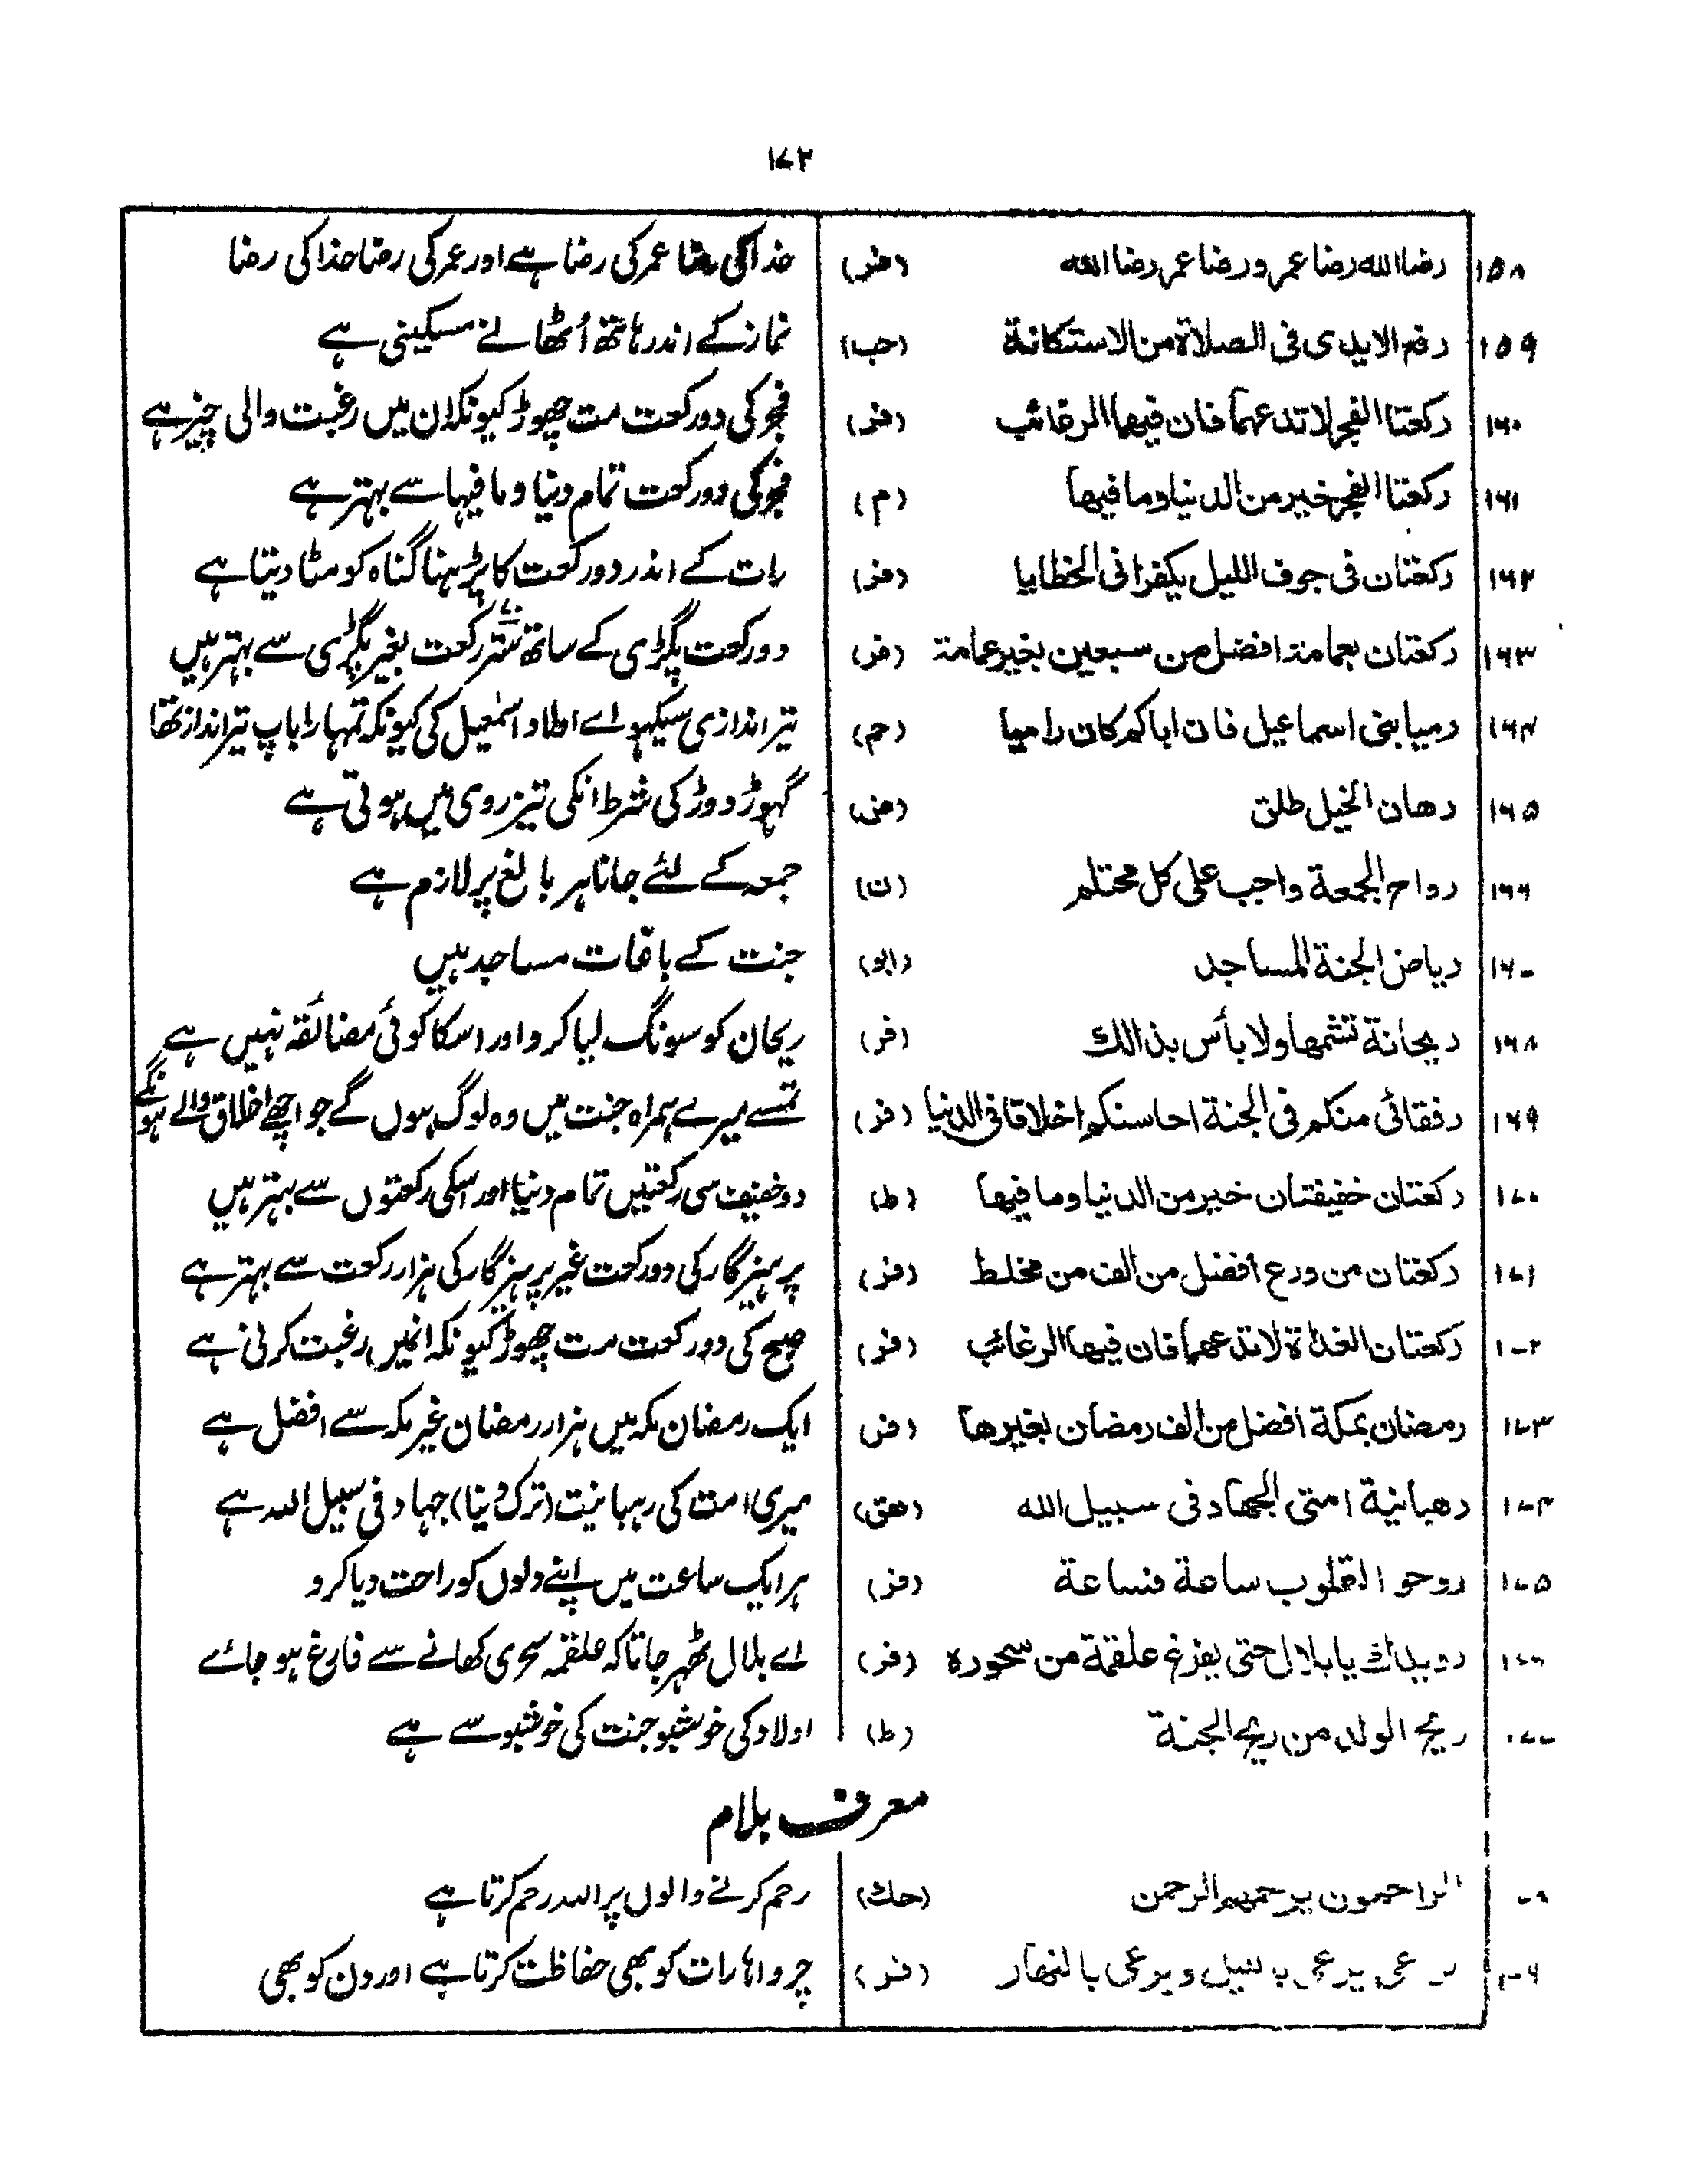 ۱۷۲
۱۵۸ رضا الله رضا عمر و رضا عمر رضا الله (فر) خدا کی رضا عمر کی رضا ہے اور عمر کی رضا خدا کی رضا
۱۵۹ رفع الايدى فى الصلاة من الاستكانة (حب) نماز کے اندر ہاتھ اُٹھانے مسکینی ہے
۱۶۰ ركعتا الفجر لا تدعهما فان فيهما الرغائب (فر) فجر کی دو رکعت مت چھوڑ کیونکہ ان میں رغبت والی چیز ہے
۱۶۱ ركعتا الفجر خير من الدنيا وما فيها (م) فجر کی دو رکعت تمام دنیا و ما فیہا سے بہتر ہے
۱۶۲ ركعتان فى جوف الليل يكفران الخطايا (فر) رات کے اندر دو رکعت کا پڑہنا گناہ کو مٹا دیتا ہے
۱۶۳ ركعتان بعمامة افضل من سبعين بغير عمامة (فر) دو رکعت پگڑی کے ساتھ ستر رکعت بغیر پگڑی سے بہتر ہیں
۱۶۴ رميا بنى اسماعيل فان اباكم كان راميا (حم) تیر اندازی سیکہو اے اولاد اسمٰعیل کی کیونکہ تمہارا باپ تیر انداز تھا
۱۶۵ رهان الخيل طلق (ض) گہوڑ دوڑ کی شرط انکی تیز روی میں ہوتی ہے
۱۶۶ رواح الجمعة واجب على كل محتلم (ن) جمعہ کے لئے جانا ہر بالغ پر لازم ہے
۱۶۷ رياض الجنة المساجد (ابو) جنت کے باغات مساجد ہیں
۱۶۸ ريحانة تشمها ولا بأس بذالك (فر) ریحان کو سونگ لیا کرو اور اسکا کوئی مضائقہ نہیں ہے
۱۶۹ رفقائى منكم فى الجنة احاسنكم اخلاقا فى الدنيا (فر) تمسے میرے ہمراہ جنت میں وہ لوگ ہوں گے جو اچھے اخلاق والے ہونگے
۱۷۰ ركعتان خفيفتان خير من الدنيا وما فيها (ط) دو خفیف سی رکعتیں تمام دنیا اور اسکی رکعتوں سے بہتر ہیں
۱۷۱ ركعتان من ورع افضل من الف من مخلط (فر) پرہیزگار کی دو رکعت غیر پرہیزگار کی ہزار رکعت سے بہتر ہے
۱۷۲ ركعتان الغداة لا تدعهما فان فيهما الرغائب (فر) صبح کی دو رکعت مت چھوڑ کیونکہ انمیں رغبت کرنی ہے
۱۷۳ رمضان بمكة افضل من الف رمضان بغيرها (فر) ایک رمضان مکہ میں ہزار رمضان غیر مکہ سے افضل ہے
۱۷۴ رهبانية امتى الجهاد فى سبيل الله (هق) میری امت کی رہبانیت (ترک دُنیا) جہاد فی سبیل اللہ ہے
۱۷۵ روحوا القلوب ساعة فساعة (فر) ہر ایک ساعت میں اپنے دلوں کو راحت دیا کرو
۱۷۶ رويدك يا بلال حتى يفرغ علقمة من سحوره (فر) اے بلال ٹھہر جا تاکہ علقمہ سحری کھانے سے فارغ ہو جائے
۱۷۷ ريح الولد من ريح الجنة (ط) اولاد کی خوشبو جنت کی خوشبو سے ہے
معرف بلام
الراحمون يرحمهم الرحمن (حك) رحم کرنے والوں پر اللہ رحم کرتا ہے
يرعى بالليل ويرعى بالنهار (فر) چرواہا رات کو بھی حفاظت کرتا ہے اور دن کو بھی